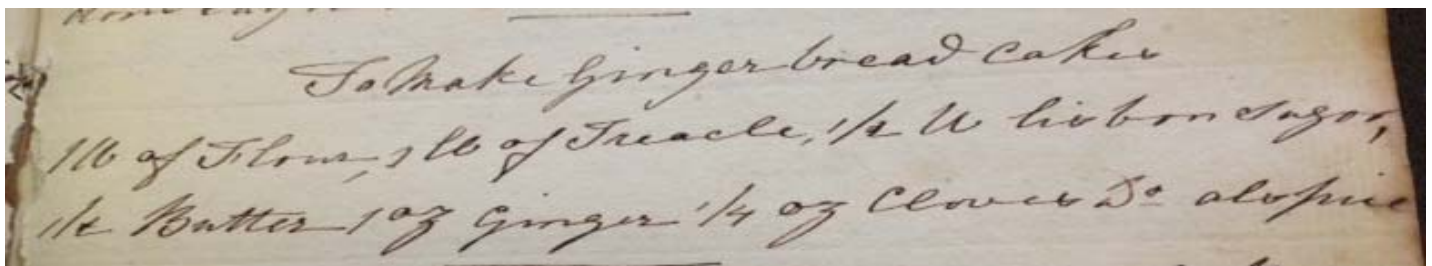 To Make Ginger bread Cakes
1lb of Flour, 1 lb of Treacle, 1/2 lb lisbon Sugar,
1/2 Butter 1 oz Ginger 1/4 oz Cloves Do alspice